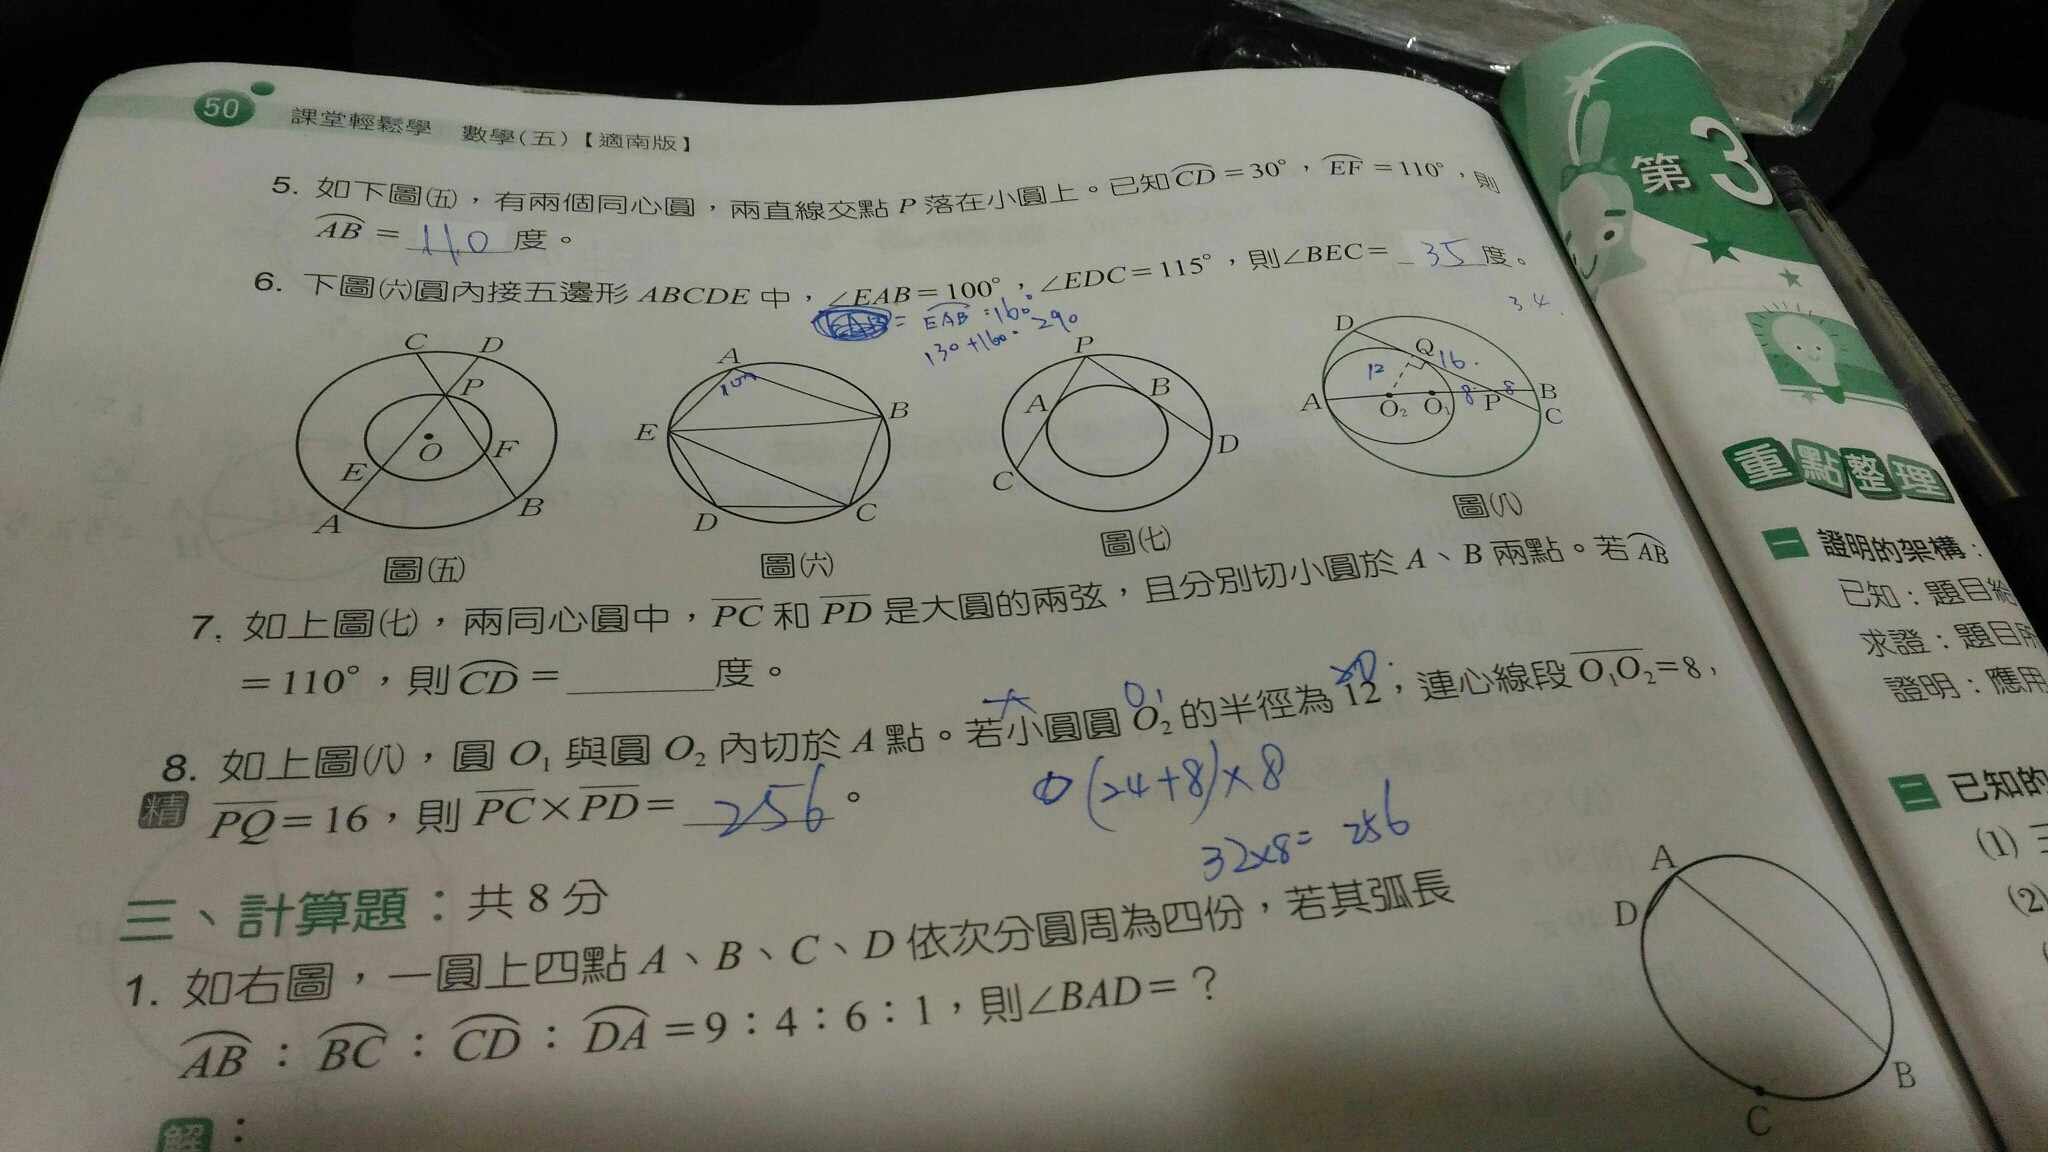 50 課堂輕鬆學 數學(五)【適南版】
5. 如下圖㈤，有兩個同心圓，兩直線交點 P 落在小圓上。已知 CD = 30°，EF = 110°，則
AB = 110 度。
6. 下圖㈥圓內接五邊形 ABCDE 中，∠EAB = 100°，∠EDC = 115°，則∠BEC = 35 度。
= EAB = 160°
130 + 160 = 290
3.4
C D P O E F A B
圖㈤
A 100 B E D C
圖㈥
P A B C D
圖㈦
D Q 16 12 A O₂ O₁ 8 P 8 B C
圖㈧
7. 如上圖㈦，兩同心圓中，PC 和 PD 是大圓的兩弦，且分別切小圓於 A、B 兩點。若 AB
= 110°，則 CD = ______度。
大 O₁ 20
8. 如上圖㈧，圓 O₁ 與圓 O₂ 內切於 A 點。若小圓圓 O₂ 的半徑為 12；連心線段 O₁O₂ = 8，
精 PQ = 16，則 PC × PD = 256 。
(24+8)×8
32×8= 256
三、計算題：共 8 分
1. 如右圖，一圓上四點 A、B、C、D 依次分圓周為四份，若其弧長
AB：BC：CD：DA = 9：4：6：1，則∠BAD = ？
解：
A
D
B
C
第 3
重點整理
一 證明的架構：
已知：題目給
求證：題目所
證明：應用
二 已知的
(1)
(2)